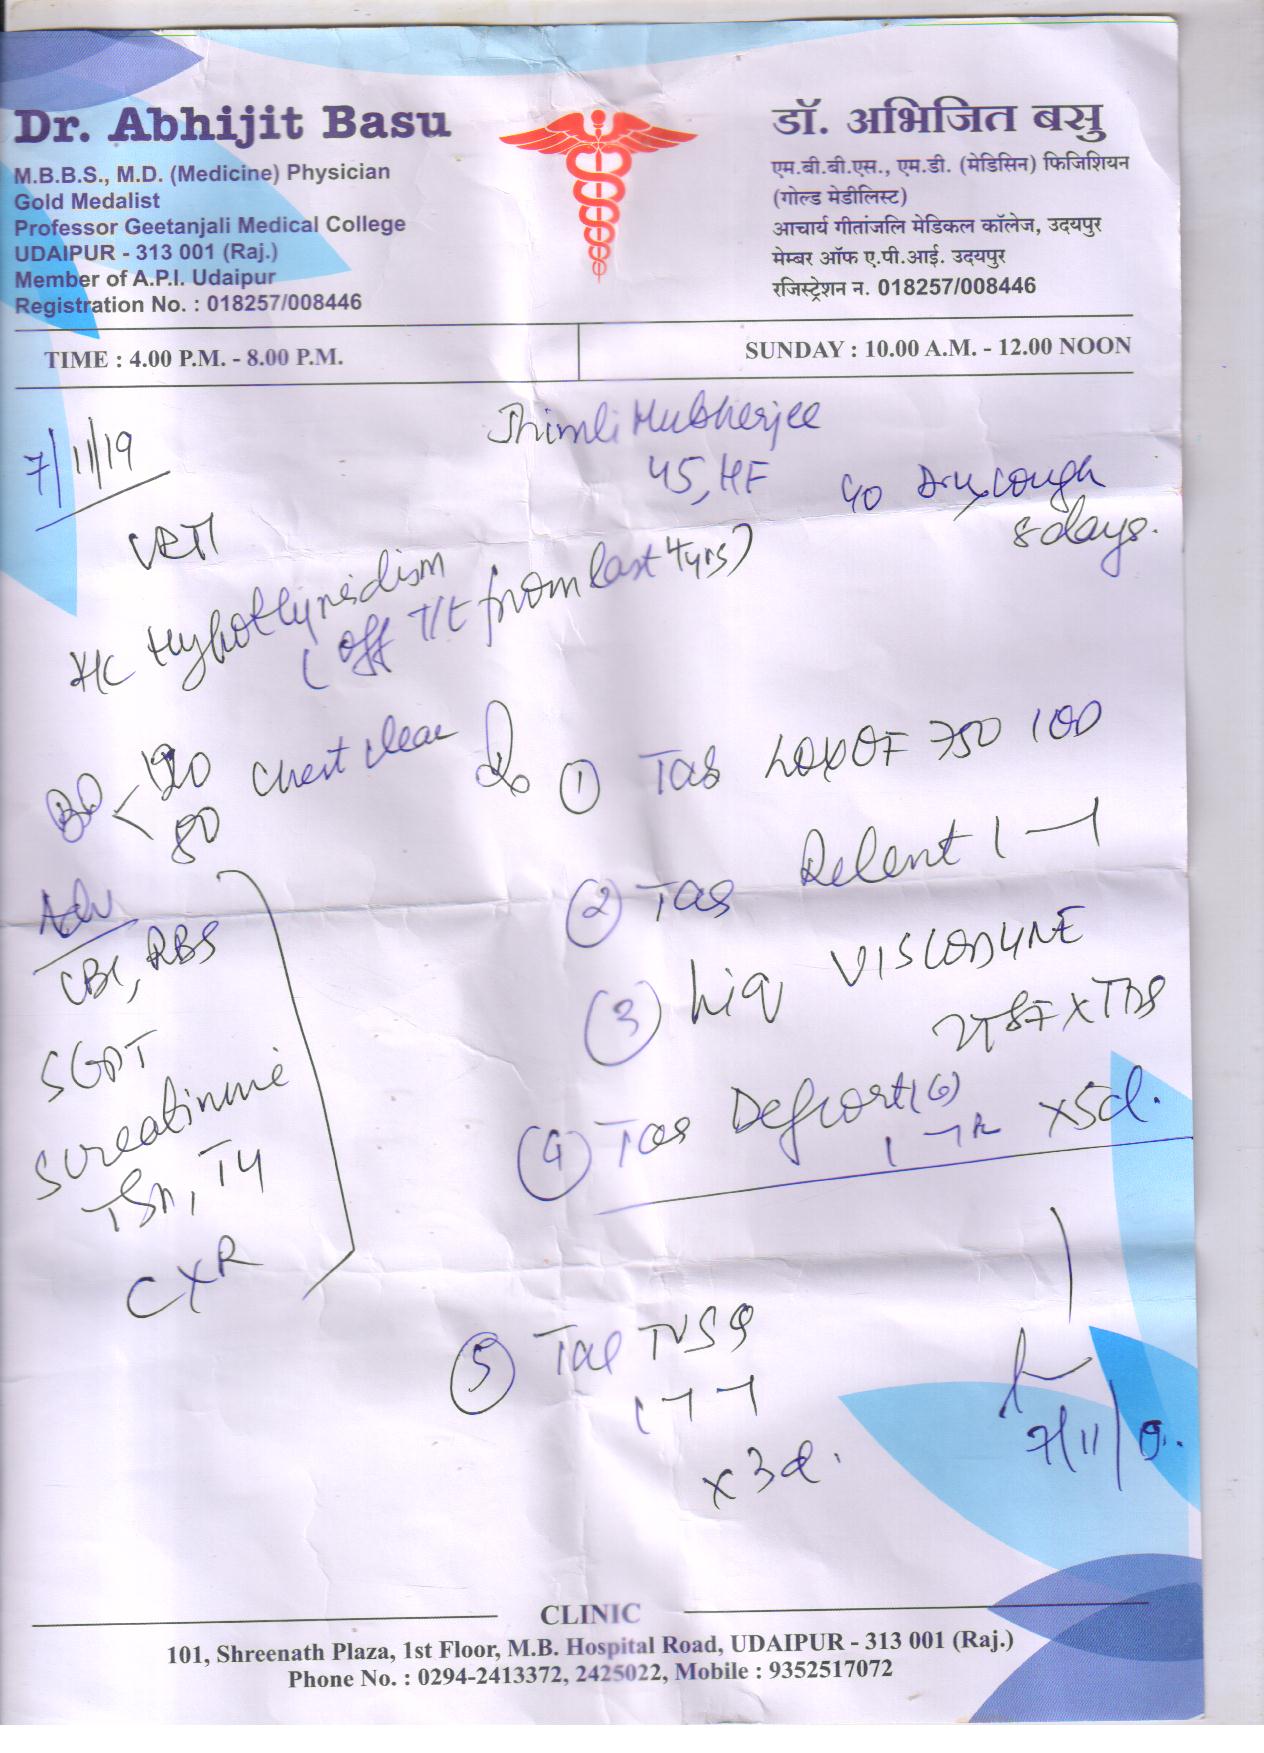 Dr. Abhijit Basu
M.B.B.S., M.D. (Medicine) Physician
Gold Medalist
Professor Geetanjali Medical College
UDAIPUR - 313 001 (Raj.)
Member of A.P.I. Udaipur
Registration No. : 018257/008446
डॉ. अभिजित बसु
एम.बी.बी.एस., एम.डी. (मेडिसिन) फिजिशियन
(गोल्ड मेडीलिस्ट)
आचार्य गीतांजलि मेडिकल कॉलेज, उदयपुर
मेम्बर ऑफ ए.पी.आई. उदयपुर
रजिस्ट्रेशन न. 018257/008446
TIME : 4.00 P.M. - 8.00 P.M.
SUNDAY : 10.00 A.M. - 12.00 NOON
7/11/19
Jhimli Mukherjee
45, HF
c/o Dry cough
8 days.
URTI
K/C Hypothyroidism
(off T/t from last 4yrs)
BP < 120
80
Chest clear
Adv
CBC, RBS
SGPT
S creatinine
TSH, T4
CXR
① Tab LOXOF 750 1 OD
② Tab Relent 1 — 1
③ Liq VISCODYNE
2TSF X TDS
④ Tab Defcort (6)
x 5d.
⑤ Tab
x 3d.
7/11/19.
CLINIC
101, Shreenath Plaza, 1st Floor, M.B. Hospital Road, UDAIPUR - 313 001 (Raj.)
Phone No. : 0294-2413372, 2425022, Mobile : 9352517072